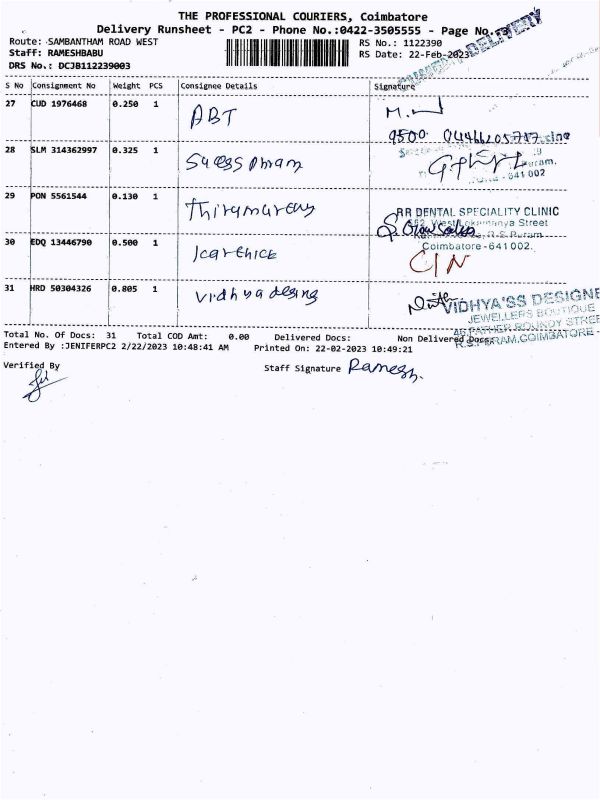 THE PROFESSIONAL COURIERS, Coimbatore
Delivery Runsheet - PC2 - Phone No.:0422-3505555 - Page No.
Route: SAMBANTHAM ROAD WEST RS No.: 1122390
Staff: RAMESHBABU RS Date: 22-Feb-2023
DRS No.: DCJB112239003
DELIVERY
S No Consignment No Weight PCS Consignee Details Signature
27 CUD 1976468 0.250 1 ABT
9500
28 SLM 314362997 0.325 1
641 002
29 PON 5561544 0.130 1
RR DENTAL SPECIALITY CLINIC
Street
30 EDQ 13446790 0.500 1
Coimbatore - 641 002.
31 HRD 50304326 0.805 1 vidhya desing
VIDHYA'SS DESIGNE
JEWELLERS BOUTIQUE
Total No. Of Docs: 31 Total COD Amt: 0.00 Delivered Docs: Non Delivered Docs:
Entered By :JENIFERPC2 2/22/2023 10:48:41 AM Printed On: 22-02-2023 10:49:21
Verified By Staff Signature Ramesh.